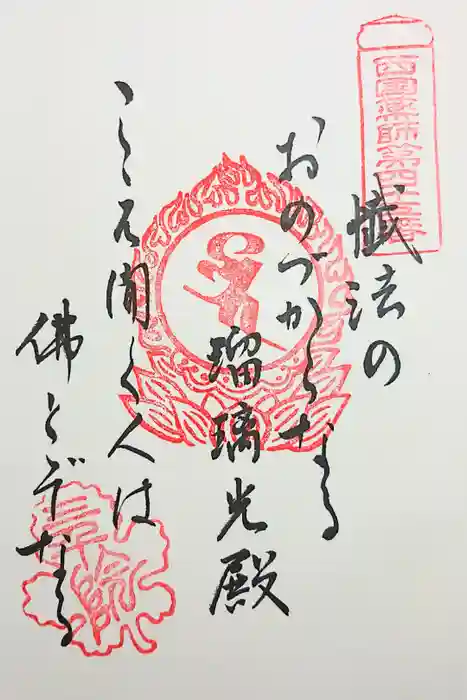 西國薬師第四十五番
懺法の
おのづからなる
瑠璃光殿
こゑ聞く人は
佛とぞなる